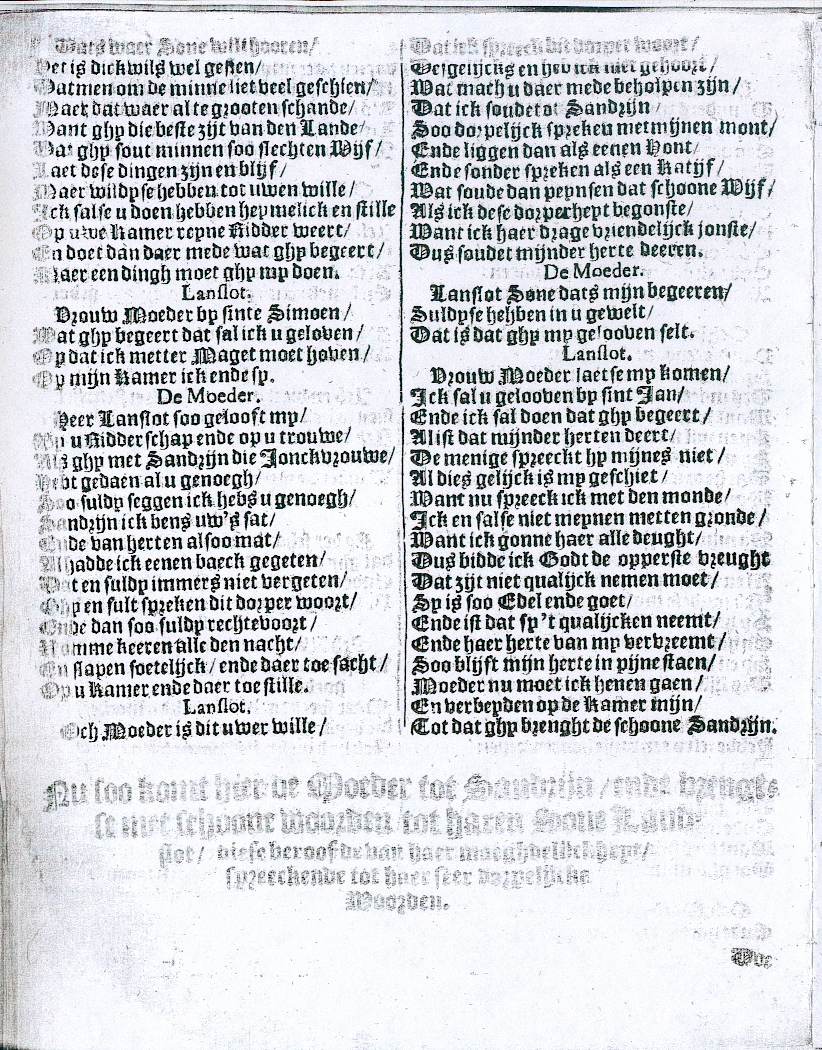 Dats waer Sone wilt hooren/
Het is dickwils wel gesien/
Datmen om de minne liet veel geschien/
Maer dat waer al te grooten schande/
Want ghy die beste zijt van den Lande/
Dat ghy sout minnen soo slechten Wijf/
Laet dese dingen zijn en blijf/
Maer wildyse hebben tot uwen wille/
Ick salse u doen hebben heymelick en stille
Op uwe Kamer reyne Ridder weert/
En doet dan daer mede wat ghy begeert/
Maer een dingh moet ghy my doen.
Lanslot.
Vrouw Moeder by sinte Simoen/
Wat ghy begeert dat sal ick u geloven/
Op dat ick metter Maget moet hoven/
Op mijn Kamer ick ende sy.
De Moeder.
Heer Lanslot soo gelooft my/
Op u Ridderschap ende op u trouwe/
Als ghy met Sandrijn die Jonckvrouwe/
Hebt gedaen al u genoegh/
Soo suldy seggen ick hebs u genoegh/
Sandrijn ick bens uw's sat/
Ende van herten alsoo mat/
Al hadde ick eenen baeck gegeten/
Dat en suldy immers niet vergeten/
Ghy en sult spreken dit dorper woort/
Ende dan soo suldy rechtevoort/
Homme keeren alle den nacht/
En slapen soetelijck/ ende daer toe sacht/
Op u Kamer ende daer toe stille.
Lanslot.
Och Moeder is dit uwer wille/
Dat ick spreeck dit dorper woort/
Desgelijcks en heb ick niet gehoort/
Wat mach u daer mede beholpen zijn/
Dat ick soude tot Sandrijn/
Soo dorpelijck spreken met mijnen mont/
Ende liggen dan als eenen Hont/
Ende sonder spreken als een Katijf/
Wat soude dan peynsen dat schoone Wijf/
Als ick dese dorperheyt begonste/
Want ick haer drage vriendelijck jonste/
Dus soudet mijnder herte deeren.
De Moeder.
Lanslot Sone dats mijn begeeren/
Suldyse hebben in u gewelt/
Dat is dat ghy my gelooven selt.
Lanslot.
Vrouw Moeder laetse my komen/
Ick sal u gelooven by sint Jan/
Ende ick sal doen dat ghy begeert/
Al ist dat mijnder herten deert/
De menige spreeckt hy mijnes niet/
Al dies gelijck is my geschiet/
Want nu spreeck ick met den monde/
Ick en salse niet meynen metten gronde/
Want ick gonne haer alle deught/
Dus bidde ick Godt de opperste vreught
Dat zijt niet qualijck nemen moet/
Sy is soo Edel ende goet/
Ende ist dat sy't qualijcken neemt/
Ende haer herte van my vervreemt/
Soo blijft mijn herte in pijne staen/
Moeder nu moet ick henen gaen/
En verbeyden op de Kamer mijn/
Tot dat ghy brenght de schoone Sandrijn.
Nu soo komt hier de Moeder tot Sandrijn/ ende brengt-
se met schoone woorden tot haren Sone Lans-
slot/ diese beroofde van haer maeghdelijckheyt/
spreeckende tot haer seer dorpelijcke
Woorden.